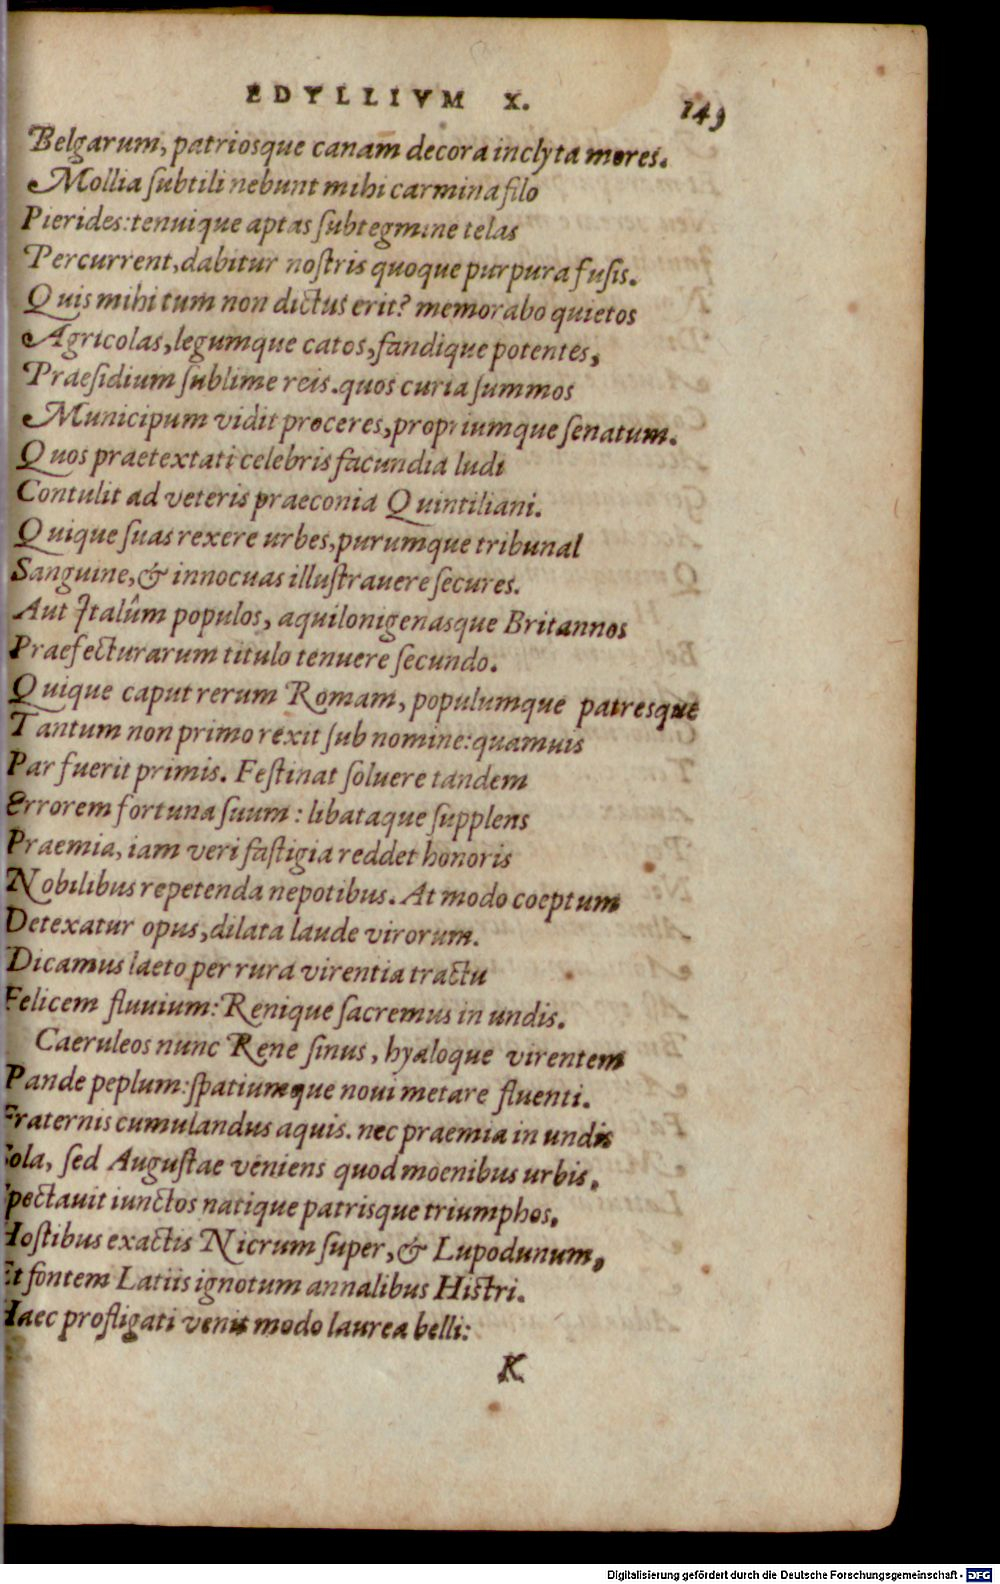 EDYLLIVM X. 149
Belgarum, patriosque canam decora inclyta mores.
Mollia subtili nebunt mihi carmina filo
Pierides: tenuique aptas subtegmine telas
Percurrent, dabitur nostris quoque purpura fusis.
Quis mihi tum non dictus erit? memorabo quietos
Agricolas, legumque catos, fandique potentes,
Praesidium sublime reis. quos curia summos
Municipum vidit proceres, propriumque senatum.
Quos praetextati celebris facundia ludi
Contulit ad veteris praeconia Quintiliani.
Quique suas rexere urbes, purumque tribunal
Sanguine, & innocuas illustrauere secures.
Aut Italûm populos, aquilonigenasque Britannos
Praefecturarum titulo tenuere secundo.
Quique caput rerum Romam, populumque patresque
Tantum non primo rexit sub nomine: quamuis
Par fuerit primis. Festinat soluere tandem
Errorem fortuna suum: libataque supplens
Praemia, iam veri fastigia reddet honoris
Nobilibus repetenda nepotibus. At modo coeptum
Detexatur opus, dilata laude virorum.
Dicamus laeto per rura virentia tractu
Felicem fluuium: Renique sacremus in undis.
Caeruleos nunc Rene sinus, hyaloque virentem
Pande peplum: spatiumque noui metare fluenti.
Fraternis cumulandus aquis. nec praemia in undis
Sola, sed Augustae veniens quod moenibus urbis,
Spectauit iunctos natique patrisque triumphos,
Hostibus exactis Nicrum super, & Lupodunum,
Et fontem Latiis ignotum annalibus Histri.
Haec profligati venit modo laurea belli:
K
Digitalisierung gefördert durch die Deutsche Forschungsgemeinschaft - DFG